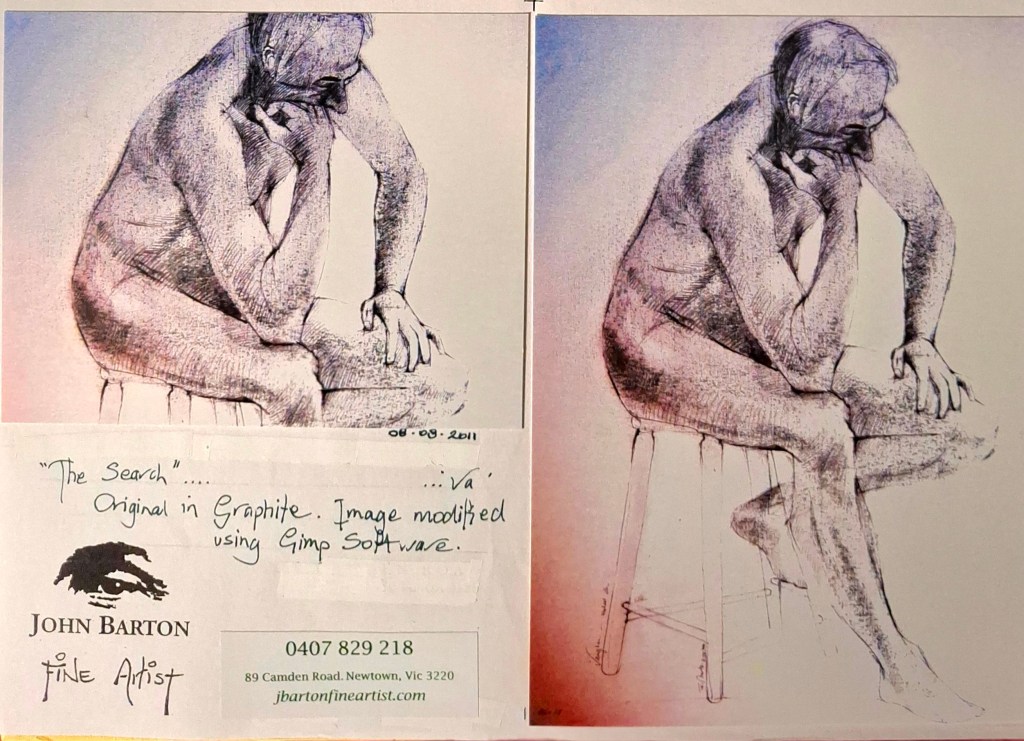 08.09.2011
"The Search"....
Original in Graphite. Image modified
using Gimp Software.
JOHN BARTON
Fine Artist
0407 829 218
89 Camden Road. Newtown, Vic 3220
jbartonfineartist.com